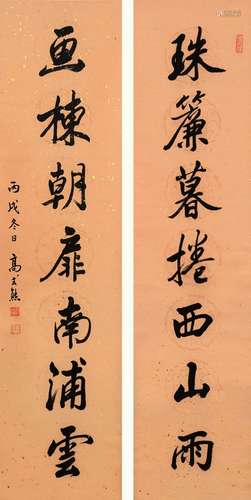 珠簾暮捲西山雨
画棟朝扉南浦雲
丙戌冬日 高式熊